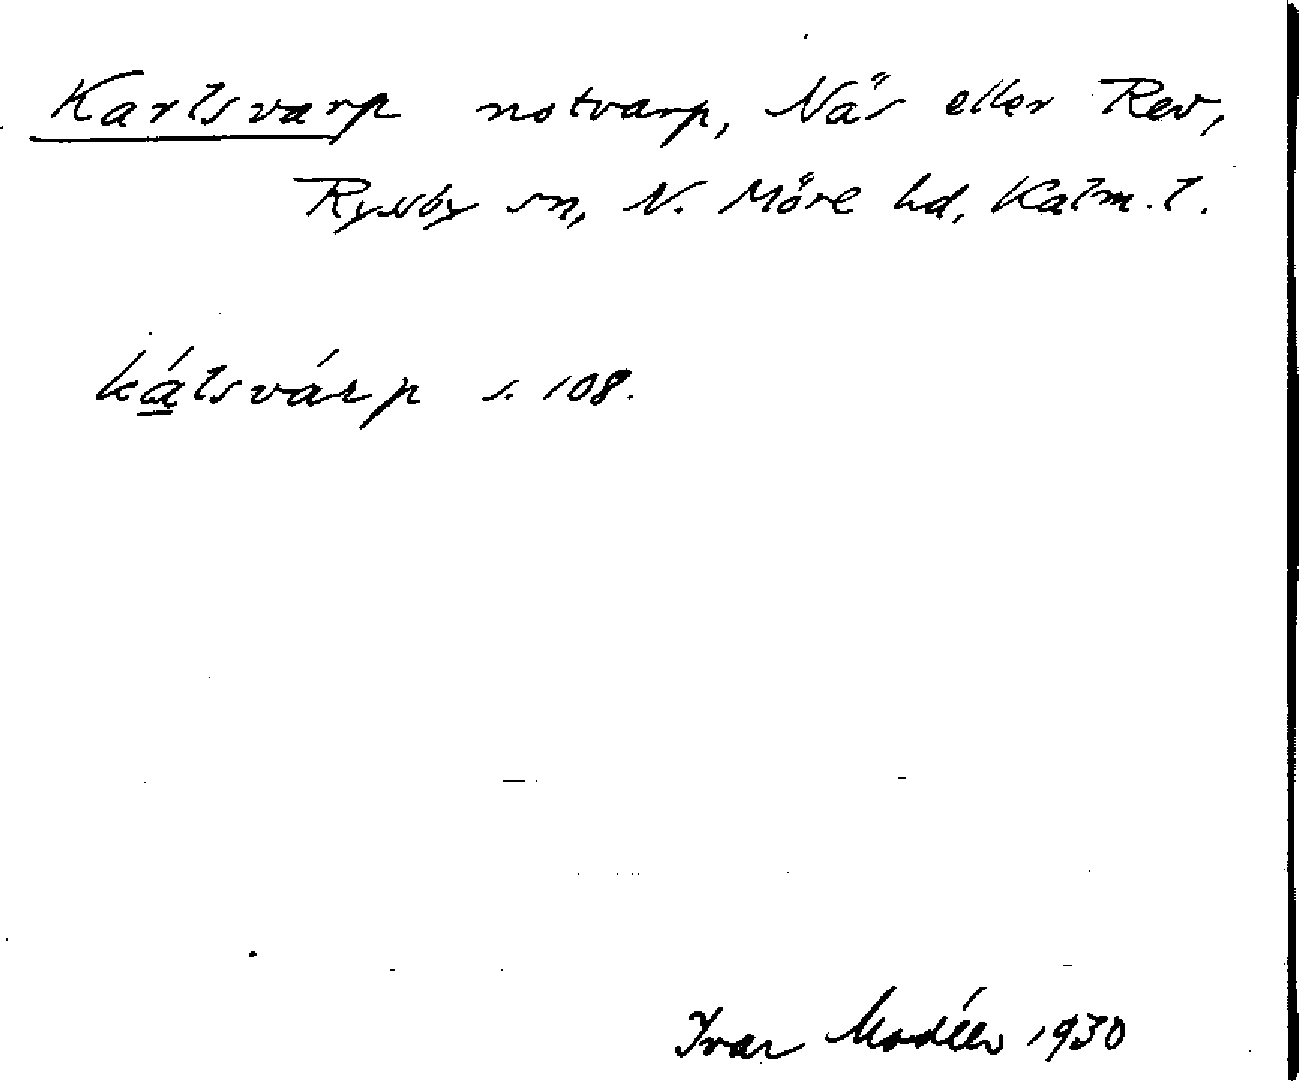 Karlsvarp notvarp, Näs eller Rev,
Ryssby sn, N. Möre hd, Kalm. l.
kálsvárp s. 108.
Ivar Modéer 1930